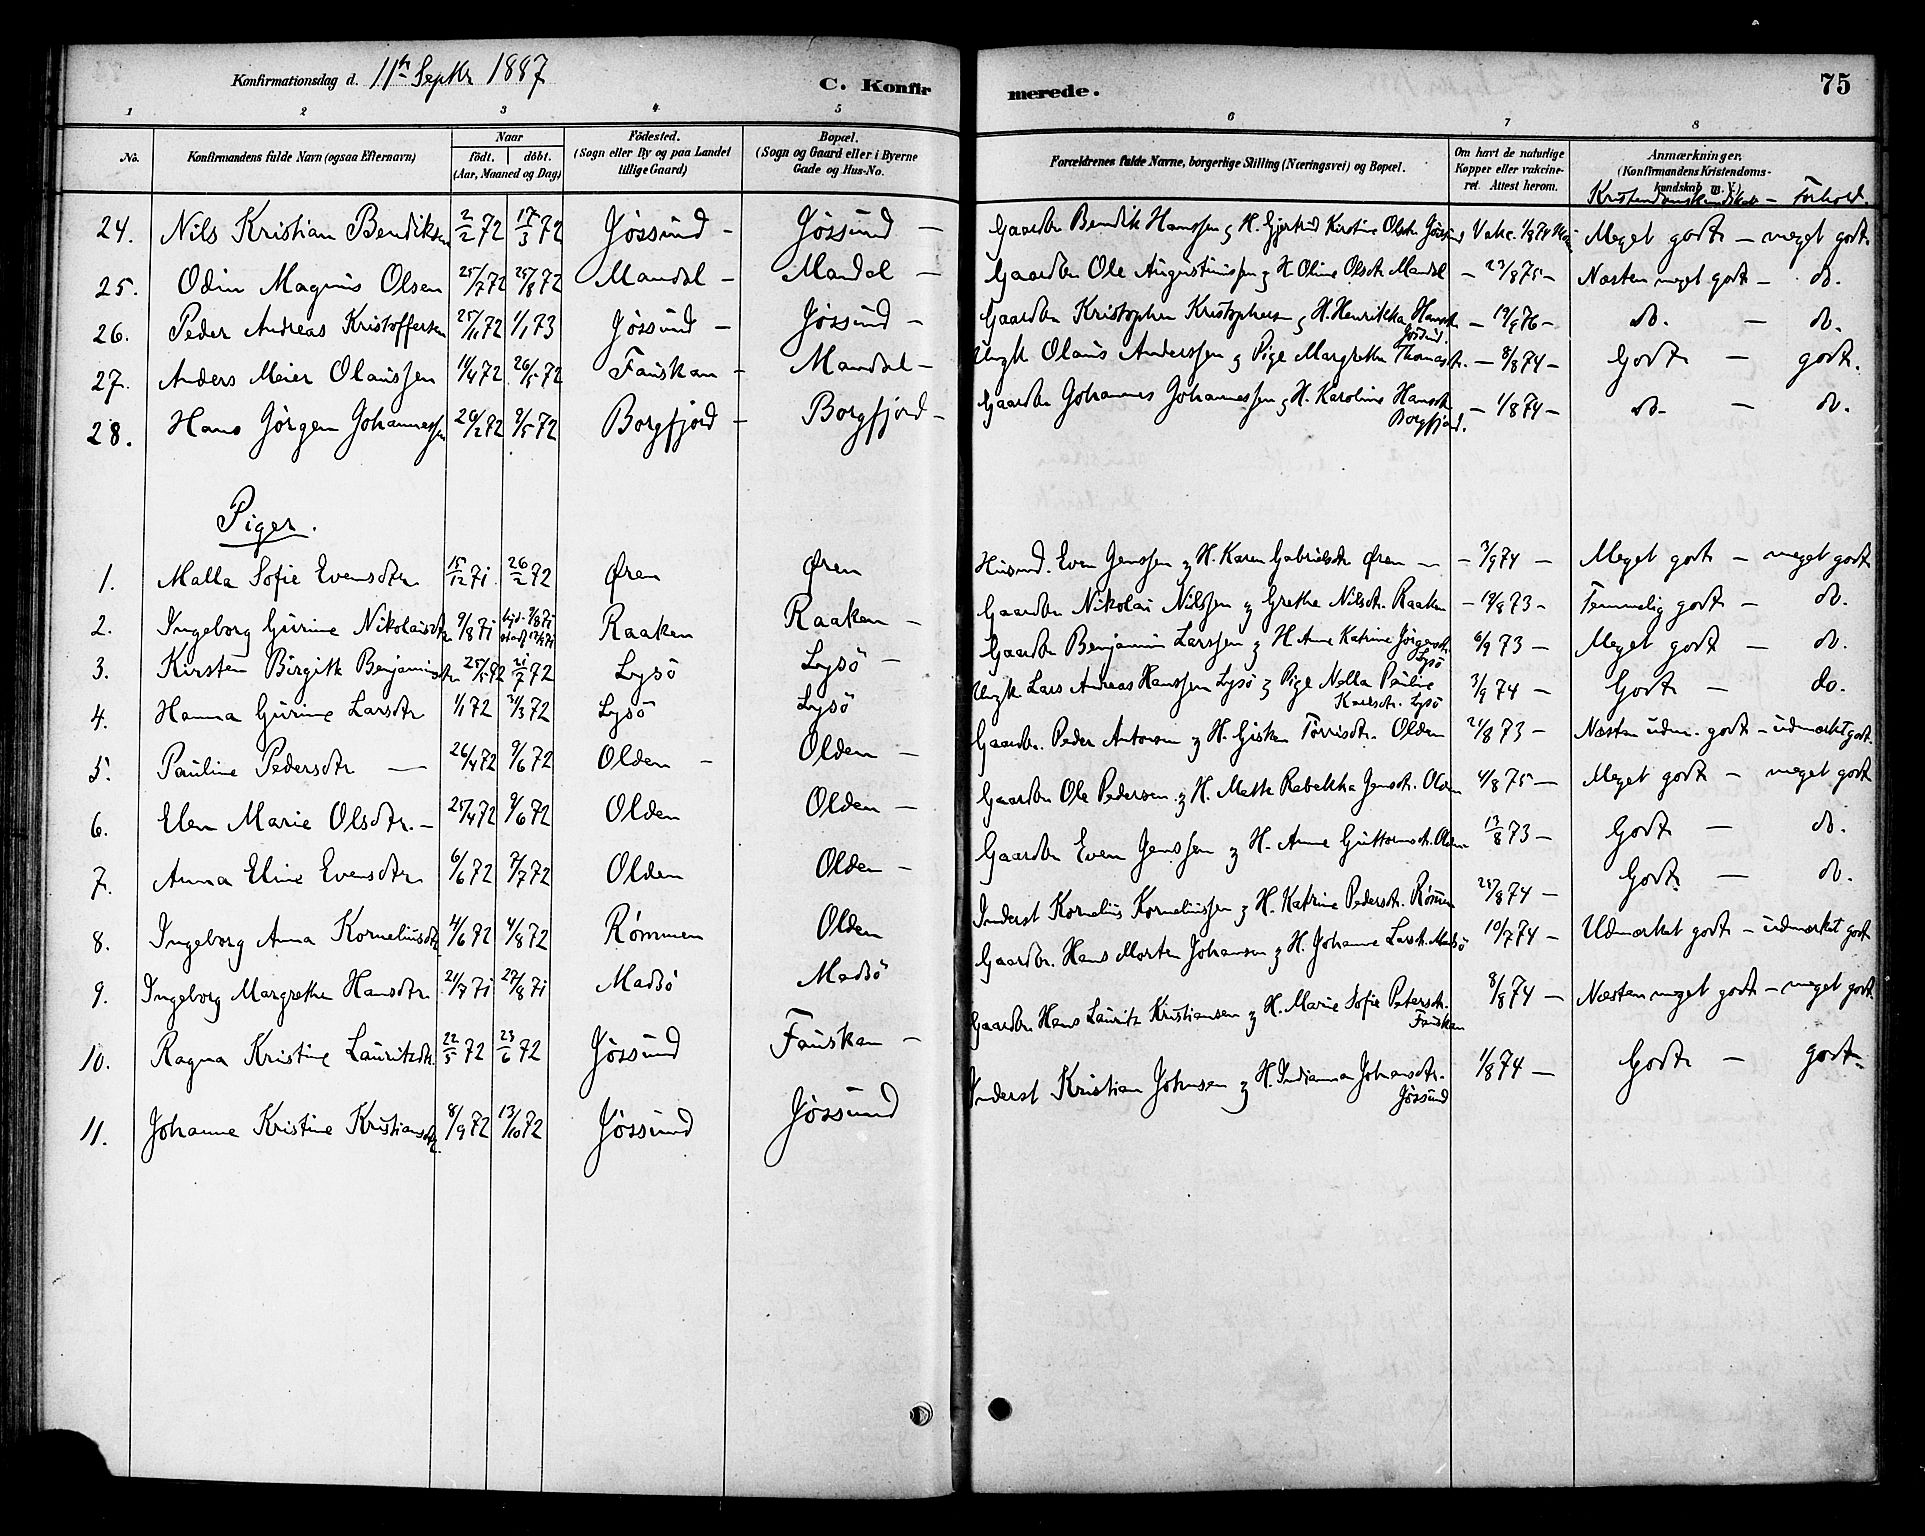 Konfirmationsdag d. 11te Septbr 1887
C. Konfir
merede.
75
1 2 3 4 5 6 7 8
No.
Konfirmandens fulde Navn (ogsaa Efternavn)
Naar
födt. döbt.
(Aar, Maaned og Dag)
Födested.
(Sogn eller By og paa Landet tillige Gaard)
Bopæl.
(Sogn og Gaard eller i Byerne Gade og Hus-No.
Forældrenes fulde Navne, borgerlige Stilling (Næringsvei) og Bopæl.
Om havt de naturlige Kopper eller vakcineret. Attest herom.
Anmærkninger.
(Konfirmandens Kristendomskundskab m. V.)
Kristendomskundskab — Forhold.
24. Nils Kristian Bendiksen 2/2 72 17/3 72 Jössund - Jössund - Gaardbr Bendik Hanssen & H. Gjertrud Kirstine Olsdtr Jössund Vakc. 1/8 74 Meget godt - meget godt
25. Odin Magnus Olsen 25/7 72 25/8 72 Mandal - Mandal - Gaardbr Ole Augustinussen & H. Oline Olsdtr Mandal - 23/8 75 - Næsten meget godt - do.
26. Peder Andreas Kristoffersen 25/11 72 1/1 73 Jössund - Jössund - Gaardbr Kristopher Kristophersen & H. Henrikka Hansdtr Jössund. - 19/8 76 - do. - do.
27. Anders Meier Olaussen 11/4 72 26/5 72 Fauskan - Mandal - Ungk Olaus Anderssen & Pige Margrethe Thomasdtr. - 8/8 74 - Godt - godt.
28. Hans Jörgen Johannessen 26/2 72 9/5 72 Borgfjord - Borgfjord - Gaardbr Johannes Johannessen & H. Karoline Hansdtr Borgfjord. - 1/8 74 - do. - do.
Piger.
1. Malla Sofie Evensdtr 15/12 71. 26/2 72 Øren Øren Husmd. Even Jenssen & H. Karen Gabrielsdtr Øren - - 3/9 74 - Meget godt - meget godt
2. Ingeborg Gurine Nikolaisdtr 9/8 71 Raaken Raaken - Gaardbr Nikolai Nilssen & Grethe Nilsdtr. Raaken - 19/8 73 - Temmelig godt - do.
3. Kirsten Birgitte Benjaminsdtr 25/5 72 21/7 72 Lysö Lysö - Gaardbr Benjamin Larssen & H Ane Katrine Jörgensdtr Lysö 6/9 73 - Meget godt - do.
4. Hanna Gurine Larsdtr 1/1 72 31/3 72 Lysö Lysö Ungk Lars Andreas Hanssen Lysö & Pige Nella Pauline Karlsdtr. Lysö 3/9 74 - Godt - do.
5. Pauline Pedersdtr - 26/4 72 9/6 72 Olden - Olden - Gaardbr. Peder Antonsen & H. Gisken Torrisdtr. Olden 21/8 73 - Næsten udm. godt - udmærket godt.
6. Elen Marie Olsdtr. - 25/4 72 9/6 72 Olden Olden - Gaardbr Ole Pedersen & H. Mette Rebekka Jensdtr. Olden 4/8 75 - Meget godt - meget godt
7. Anna Eline Evensdtr 6/6 72 7/7 72 Olden Olden - Gaardbr Even Jenssen & H. Anne Guttormsdtr. Olden 13/8 73 - Godt - do.
8. Ingeborg Anna Korneliusdtr 11/6 72 4/8 72 Rømmen Olden Inderst Kornelius Korneliussen & H. Katrine Pedersdtr. Rømmen 25/8 74 - Godt. - do.
9. Ingeborg Margrethe Hansdtr. 21/7 71 27/8 71 Madsö Madsö Gaardbr. Hans Morten Johansen & H. Johanna Larsdtr. Madsö 10/7 74 - Udmærket godt - udmærket godt
10. Ragna Kristine Lauritzdtr. 22/5 72 23/6 72 Jössund Fauskan - Gaardbr. Hans Lauritz Kristiansen & H. Marie Sofie Petersdtr. Fauskan 8/8 74 - Næsten meget godt - meget godt
11. Johanne Kristine Kristiansdtr. 8/9 72 13/10 72 Jössund Jössund Inderst Kristian Johnsen & H. Indianna Johansdtr. Jössund 1/8 74 - Godt - godt -